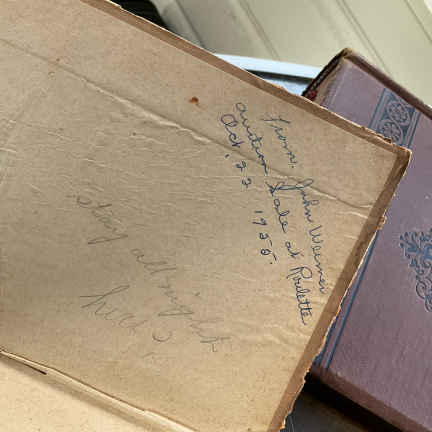 From. John Weimer
auction sale at Roulette
Oct, 22 1955.
Stay all night